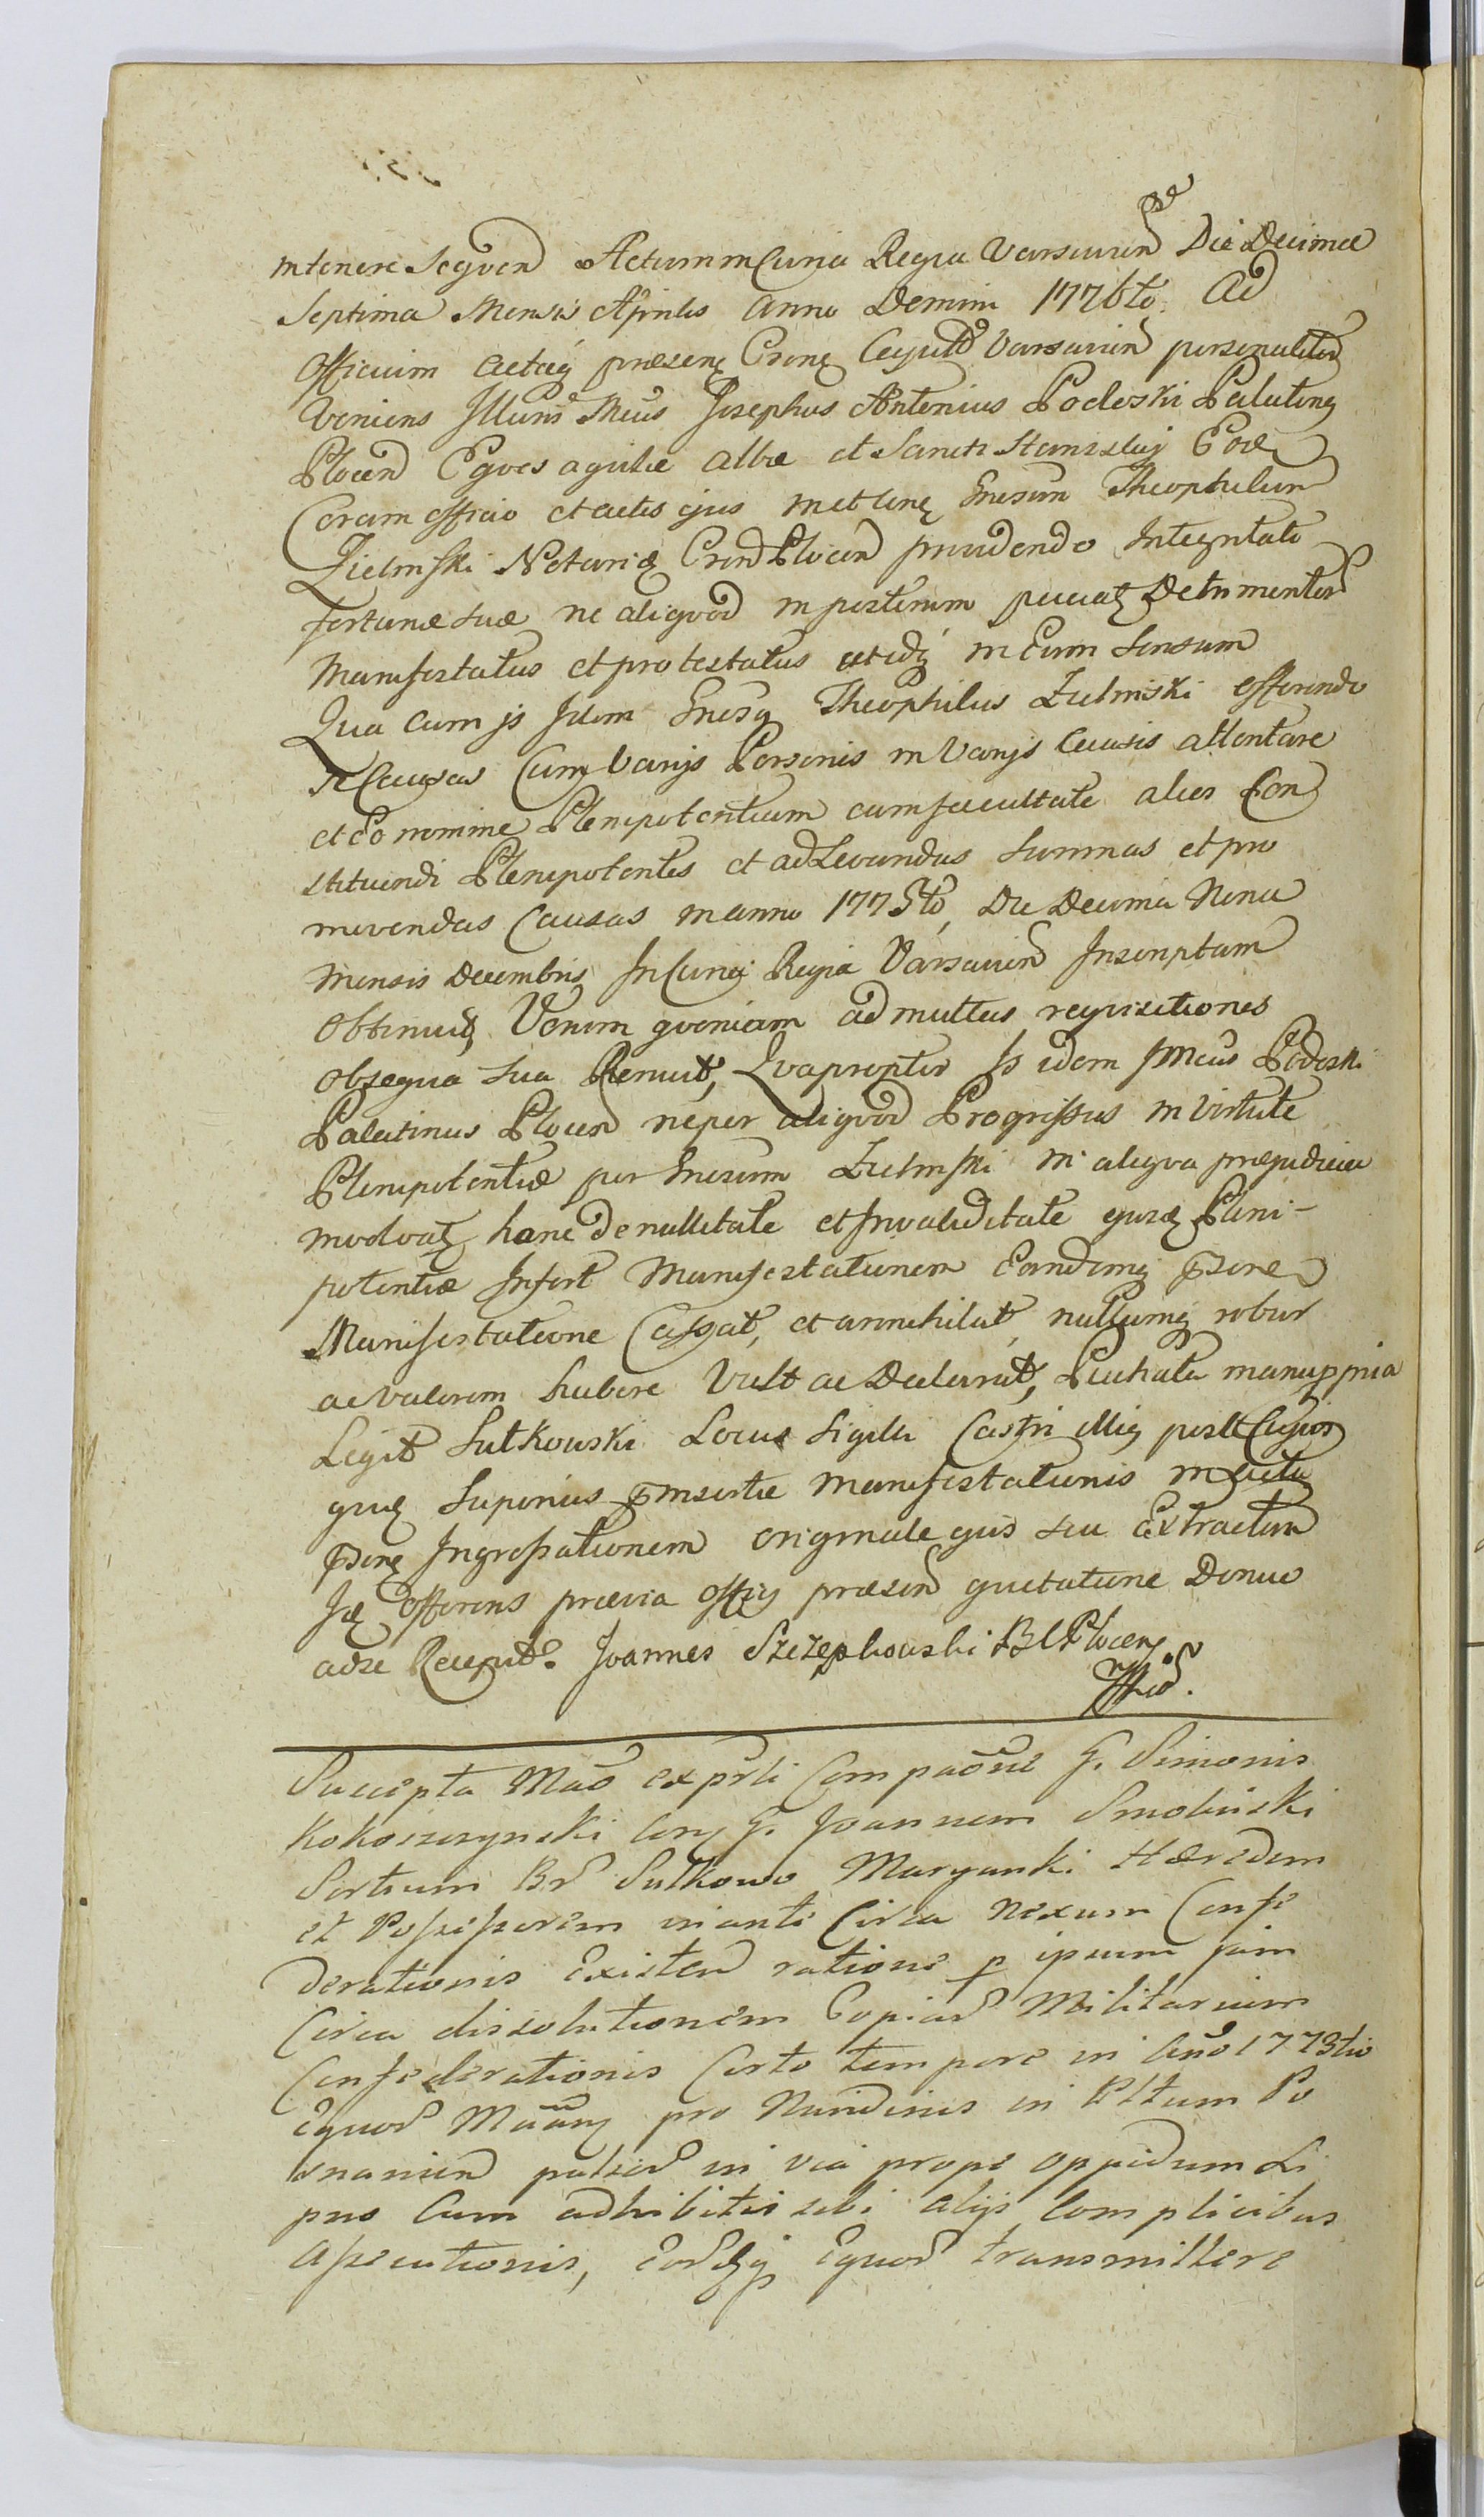 in tenore Seqven Actum in Curia Regia Varsavien Die Decima
Septima Mensis Aprilis Anno Domini 1776to Ad
Officium Actaq præsenę Crenę Capitł Varsavien personaliter
Veniens Illuris Mcus Josephus Antonius Podoski Palatinę
Plocen Eqves aqvilæ albæ et Sancti Stanislai
Coram officio et actis ejus met contrę Gnesum Theophilum
Zielinski Notariū Cren Plocen providendo Integritati
fortunæ suæ ne aliqvod in posterum patiat Detrimentum
Manifestatus et protestatus est idq in Eum Sensum
Qua cum is Idem Gnesq Theophilus Zielinski offerendo
se Causas Cum Varijs Personis in Varijs Causis attentare
et Eo nomine Plenipotentiam cum facultate alios Con
stituendi Plenipotentes et ad Levandas Summas et pro
movendas Causas in anno 1775to, Die Decima Nona
Mensis Decembris In Curia Regia Varsavien Inscriptam
Obtinuit, Verum qvoniam ad multas reqvisitiones
obseqvia sua Renuit, Qvapropter Is idem JMcus Podoski
Palatinus Plocen ne per aliqvod Progressus in Virtute
Plenipotentiæ per Gnesum Zielinski in aliqva præjudicia
involvat, hanc de nullitate et Invaliditate ejusd Pleni-
potentiæ Infert Manifestationem Eandemq præsene
Manifestatione Cassat, et annihilat, nullumq robur
ac valorem habere Vult ac Declarat, Pieczata manu ppria
Legit Sutkowski Locus Sigilli Castri illiq post Cujus
quę Superius p insertæ Manifestationis in Acta
præsenę Ingrossationem originale ejus seu Extractum
Ide Offerens prævia Offij præsen qvietatione Denuo
ad se Recepit. Joannes Szczepkowski B C Plocen
Suscepta Mao ex parti Compaōne G. Simonis
Kokoszczynski Conę G. Joannem Smoliński
Sortium Br Sutkowo Maryanki Hæredem
et Possessorem in anti Circa nexum Confe
derationis Existen ratione p ipsum jam
Circa dissolutionem Copiar Militarium
Confederationis Certo tempore in Ano 1773tio
Equor Mūanę pro Nundinis in Pltum Po
snanien pulsor in via prope oppidum Li
pno Cum adhibitis sibi alijs Complicibus
Assecutionis, Eordq Equor transmittere